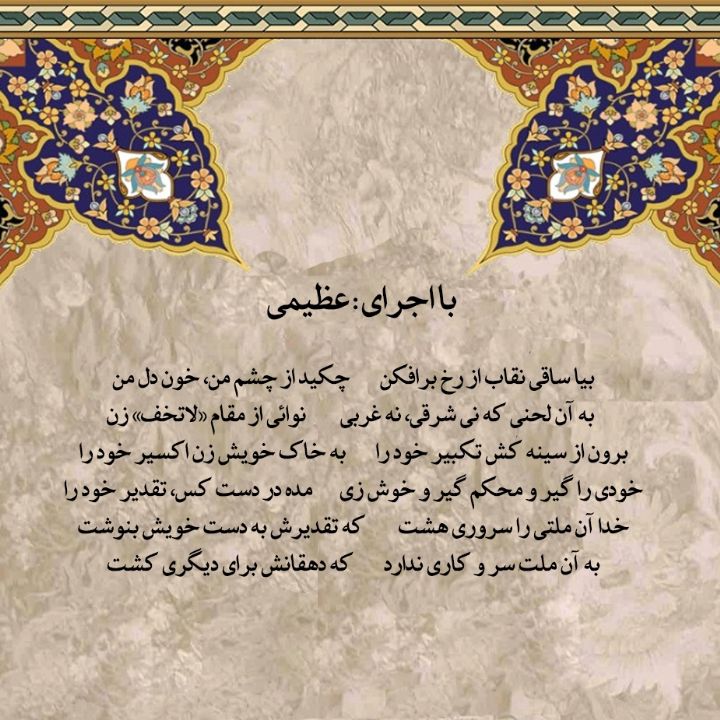 با اجرای:عظیمی
بیا ساقی نقاب از رخ برافکن چکید از چشم من، خون دل من
به آن لحنی که نی شرقی، نه غربی نوائی از مقام «لاتخف» زن
برون از سینه کش تکبیر خود را به خاک خویش زن اکسیر خود را
خودی را گیر و محکم گیر و خوش زی مده در دست کس، تقدیر خود را
خدا آن ملتی را سروری هشت که تقدیرش به دست خویش بنوشت
به آن ملت سر و کاری ندارد که دهقانش برای دیگری کشت